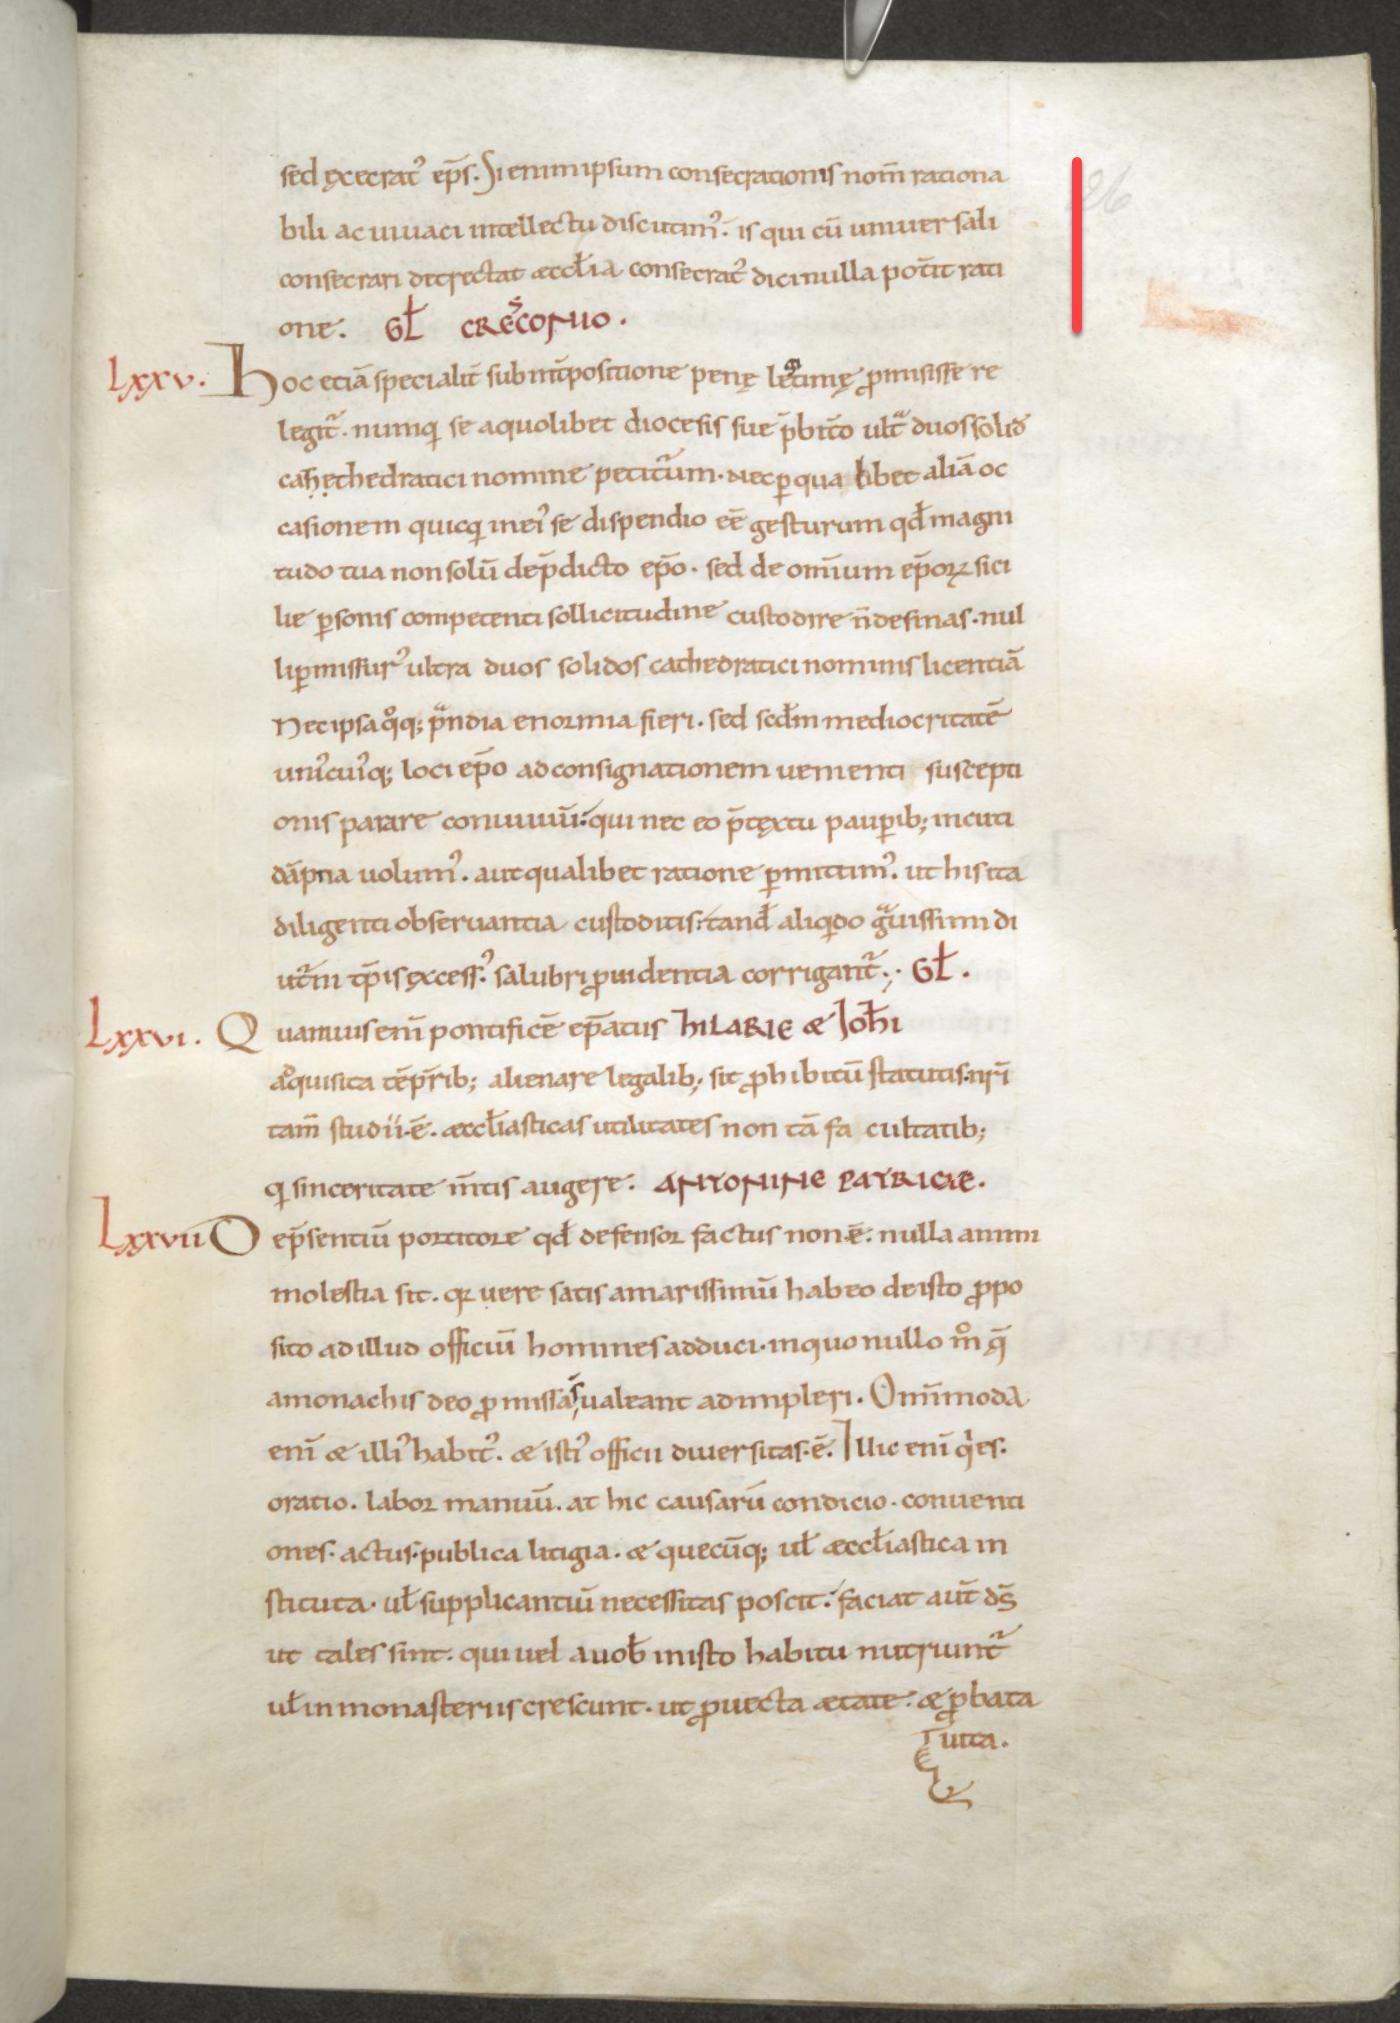 26
sed execrat᾽ ep̄s. Si enim ipsum consecrationis nom̄ rationa
bili ac uiuaci intellectu discutim᾽. is qui cū uniuersali
consecrari detrectat æccl̄ia consecrat᾽ dici nulla pot̄it rati
one. GŁ CRESCONIIO.
Lxxv. Hoc etiā specialit̄ sub int̄positione penę legitimę ꝓmisisse re
legit᾽. numqi se a quolibet diocesis sue p̄bit̄o ultᵃ duos solid̄
cathethedratici nomine petiturum. nec ꝑ qua libet aliā oc
casionem quicqi in ei᾽ se dispendio eē gesturum qđ magni
tudo tua non solū de p̄dicto ep̄o. sed de om̄ium ep̄oꝝ sici
lie ꝑsonis competenti sollicitudine custodire n̄ desinas. nul
li ꝑmissur᾽ ultra duos solidos cathedratici nominis licentiā
Nec ipsa qͦq; pᵃndia enormia fieri. sed scđm mediocritatē
uni᾽cui᾽q; loci ep̄o ad consignationem uenienti suscepti
onis parare conuiuiū. qui nec eo p̄textu pauꝑib; incuti
dāpna uolum᾽. aut qualibet ratione ꝑmittim᾽. ut his ita
diligenti obseruantia custoditis. tand̄ aliqᵃdo gᵃuissimi di
ut᾽ni tp̄is excess᾽. salubri ꝓuidentia corrigant᾽. GŁ.
Lxxvi. Quamuis eni᾽ pontificē ep̄atus HILARIE æ Joh̄i
adquisita tēp̄rib; alienare legalib; sit ꝓhibitū statutis. nr̄i
tam̄ studii. ē. æccl̄iasticas utilitates non tā fa cultatib;
qi sinceritate m̄tis augere. ANTONINE PATRICIAE.
Lxxvii De p̄sentiū portitore qđ defensor factus non. ē. nulla animi
molestia sit. qꝛ uere satis amarissimū habeo de isto ꝓpo
sito ad illud officiū homines adduci. in quo nullo mͦ q̄
a monachis deo ꝓmissa s̄ ualeant adimpleri. Om̄imoda
eni᾽ æ illi᾽ habit᾽. æ isti᾽ officii diuersitas. ē. Illic eni᾽ qies.
oratio. labor manuū. at hic causarū condicio. conuenti
ones. actus. publica litigia. æ quecūq; uł æccl̄iastica in
stituta. uł supplicantiū necessitas poscit. faciat aut̄ ds̄
ut tales sint. qui uel a uob̄ in isto habitu nutriunt᾽
uł in monasteriis crescunt. ut ꝓuecta ætate. æ ꝓbata
uita.